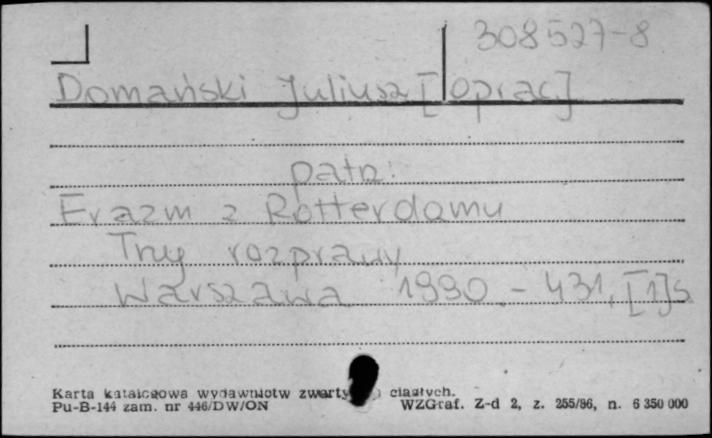 308527-8
Domański Juliusz [oprac]
patrz:
Erazm z Rotterdamu
Trzy rozprawy
Warszawa 1990.- 431, [1]s
Karta katalogowa wydawnictw zwarty ciągłych.
Pu-B-144 zam. nr 446/DW/ON WZGraf. Z-d 2, z. 255/86, n. 6 350 000